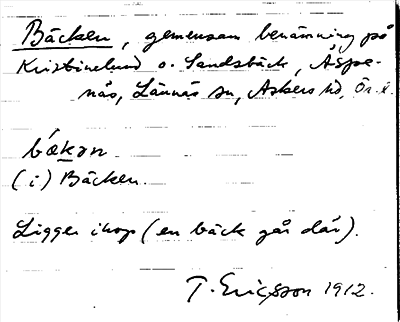 Bäcken, gemensam benämning på
Kristinelund o. Sandsbäck, Äspe-
näs, Lännäs sn, Askers hd, Ör. l.
bækan
(i) Bäcken.
Ligger ihop (en bäck går där).
T. Ericsson 1912.